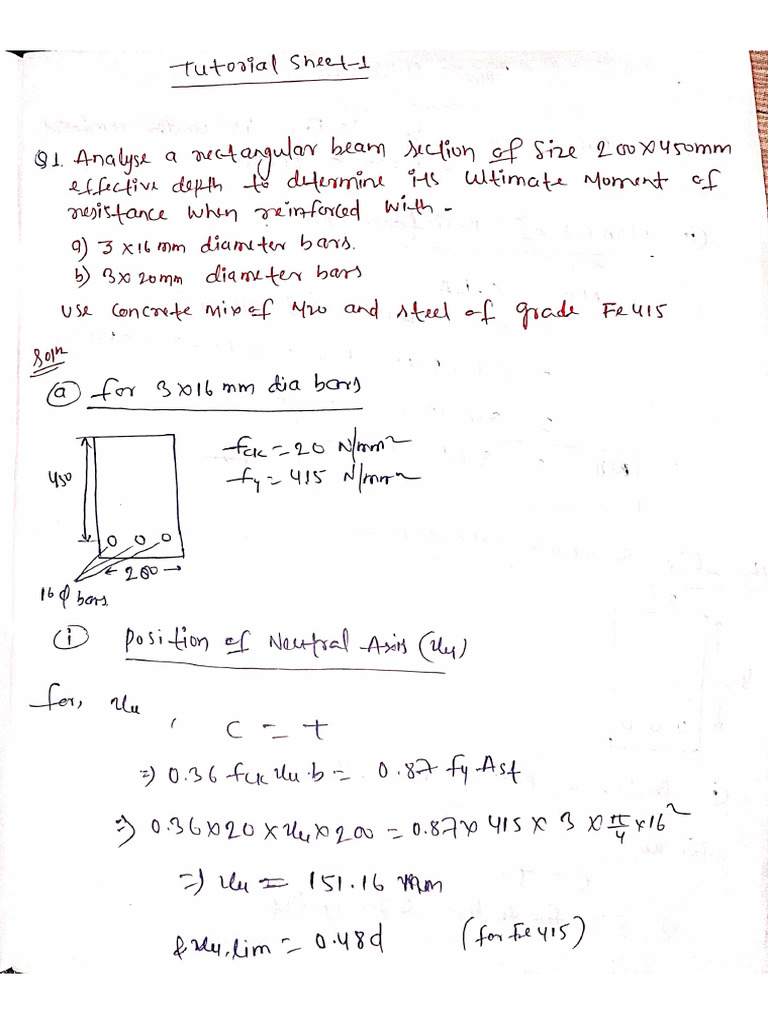 Tutorial Sheet-1
Q1. Analyse a rectangular beam section of size 200×450mm
effective depth to determine its ultimate Moment of
resistance when reinforced with -
a) 3×16 mm diameter bars.
b) 3×20mm diameter bars
Use concrete mix of M20 and steel of grade Fe415
Soln
(a) for 3×16 mm dia bars
fck = 20 N/mm²
450
fy = 415 N/mm²
200
16 ϕ bars
(i) Position of Neutral Axis (xu)
for, xu,
C = T
⇒ 0.36 fck xu·b = 0.87 fy Ast
⇒ 0.36×20×xu×200 = 0.87×415×3×π/4×16²
⇒ xu = 151.16 mm
& xu,lim = 0.48d (for Fe415)